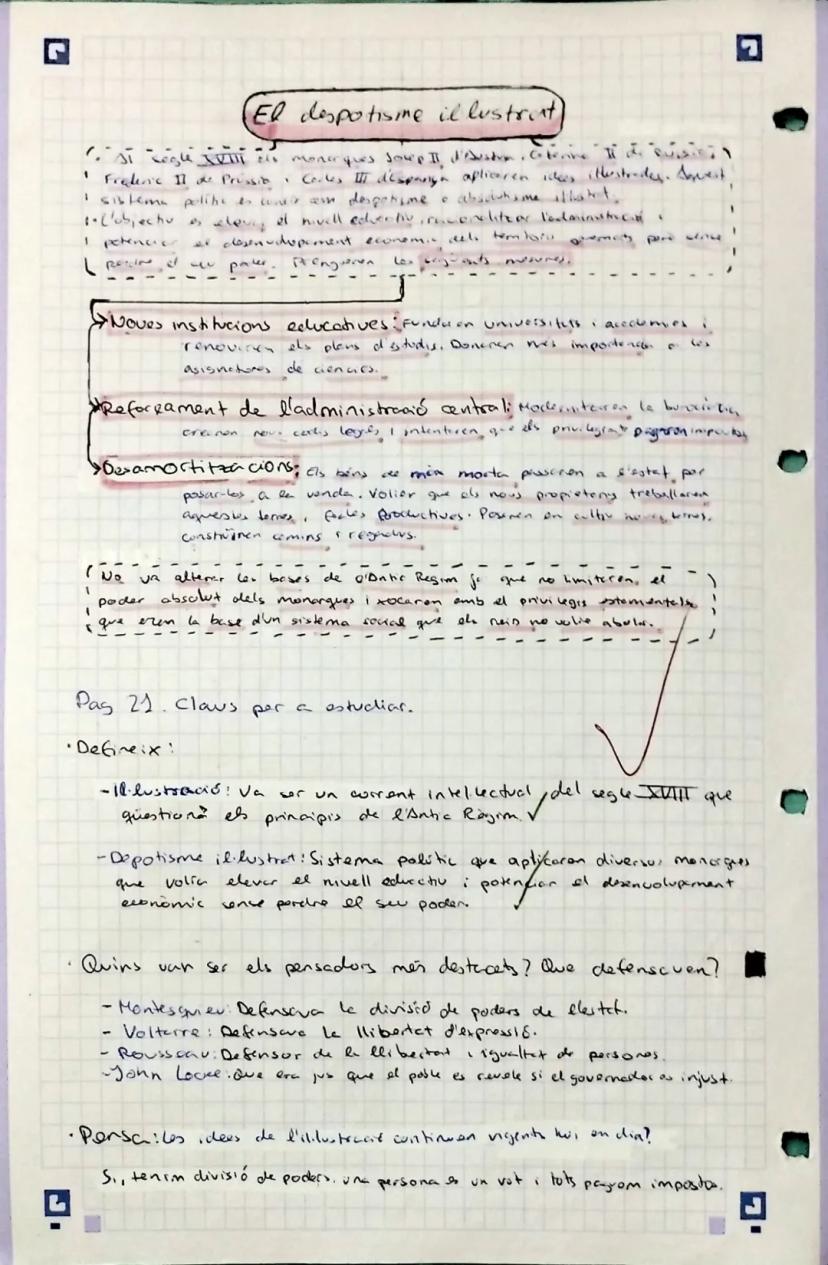 El despotisme il·lustrat
· Al segle XVIII els monarques Josep II d'Àustria, Caterina II de Rússia,
Frederic II de Prússia i Carles III d'Espanya aplicaren idees il·lustrades. Aquest
sistema polític es coneix com despotisme o absolutisme il·lustrat.
· L'objectiu es elevar el nivell educatiu, racionalitzar l'administració i
potenciar el desenvolupament econòmic dels territoris governats però sense
perdre el seu poder. Prengueren les següents mesures.
Noves institucions educatives: Fundaren universitats i acadèmies i
renovaren els plans d'estudis. Donaren més importància a les
asignatures de ciències.
Reforçament de l'administració central: Modernitzaren la burocràcia,
crearen nous codis legals i intentaren que els privilegiats pagaren impostos
Desamortitzacions: Els béns de màn morta passaren a l'estat per
posar-los a la venda. Volien que els nous propietaris treballaren
aquestes terres i fer-les productives. Posaren en cultiu noves terres,
construïren camins i regadius.
No va alterar les bases de l'Antic Regim ja que no limitaren el
poder absolut dels monarques i xocaren amb el privilegis estamentals
que eren la base d'un sistema social que els reis no volie abolir.
Pag 21. Claus per a estudiar.
· Defineix:
- Il·lustració: Va ser un corrent intel·lectual del segle XVIII que
qüestionà els principis de l'Antic Règim.
- Depotisme il·lustrat: Sistema polític que aplicaren diversos monarques
que volia elevar el nivell educatiu i potenciar el desenvolupament
econòmic sense perdre el seu poder.
· Quins van ser els pensadors més destacats? Que defensaven?
- Montesquieu: Defensava la divisió de poders de l'estat.
- Voltarre: Defensava la llibertat d'expressió.
- Rousseau: Defensor de la llibertat i igualtat de persones.
- John Locke: Que era jus que el poble es revele si el governador es injust.
· Pensa: Les idees de l'il·lustració continuen vigents hui en dia?
Si, tenim divisió de poders, una persona es un vot i tots pagam impostos.